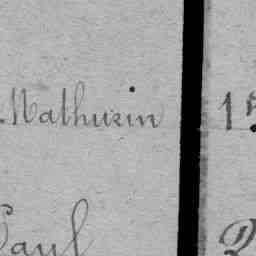 Mathurin
Paul